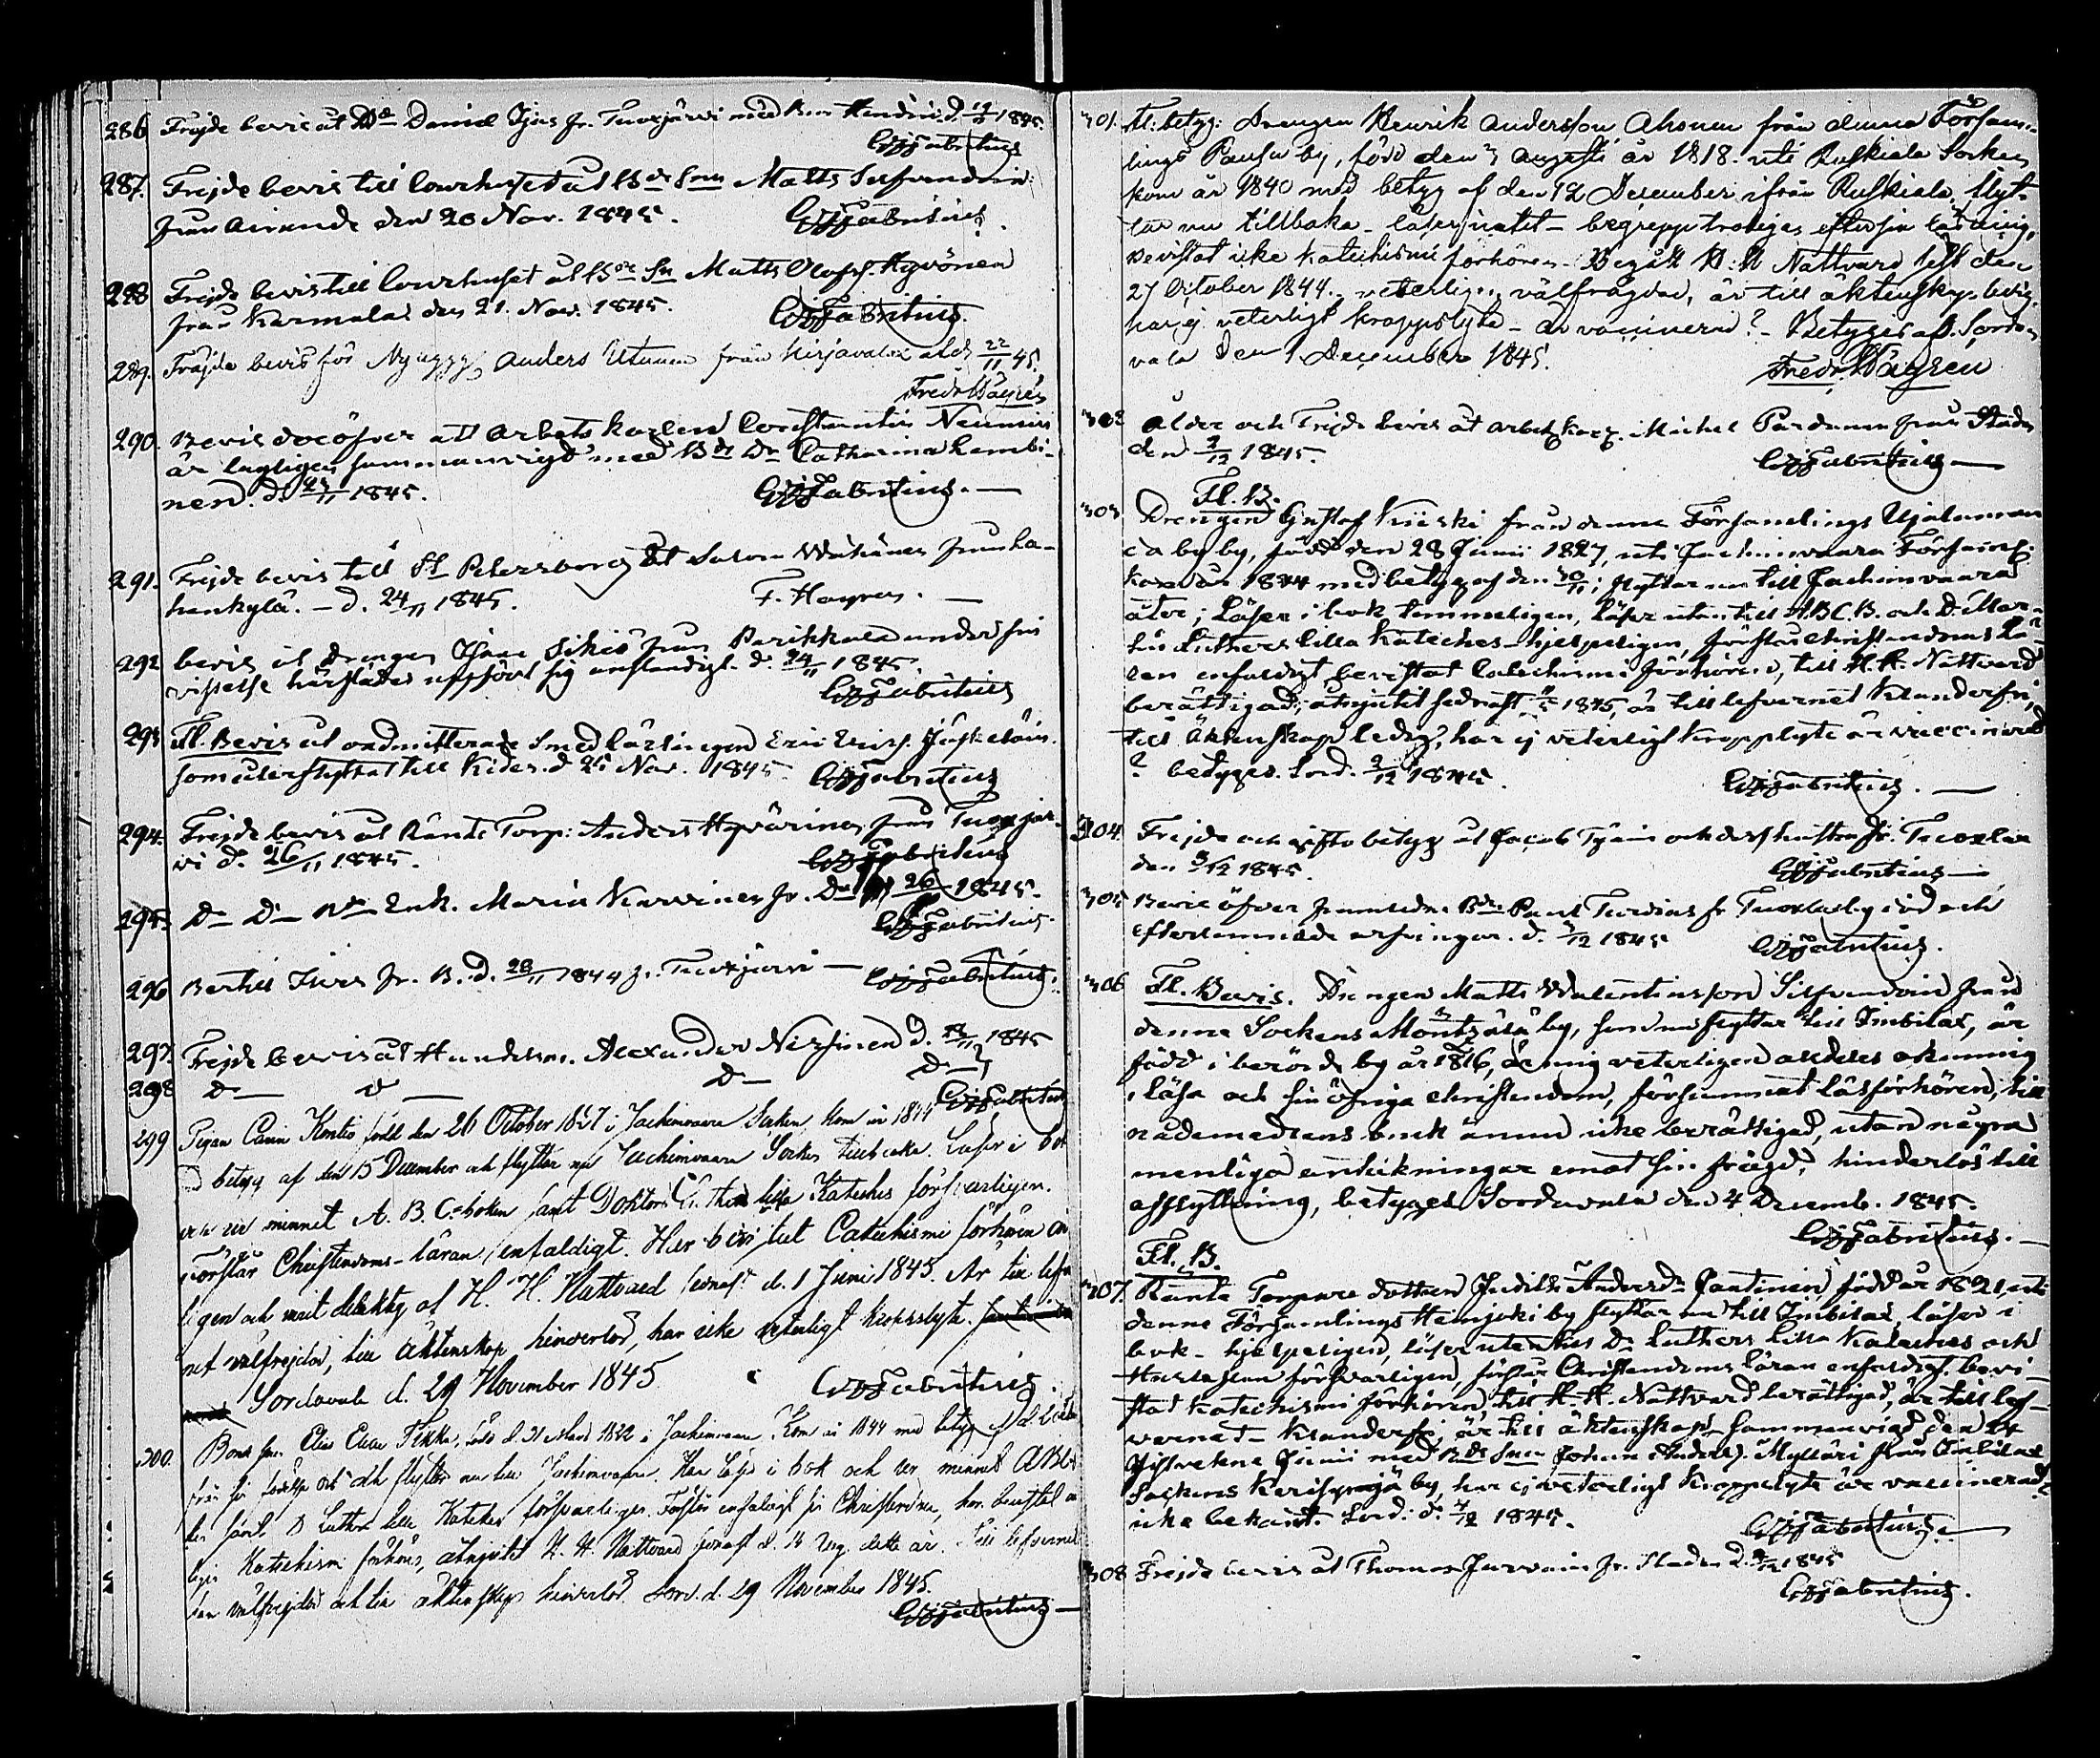 286 Frejde bevis åt Daniel Ijäs fr. Tuoxjärvi med 1845.
GJFabritius
287. Frejde bevis till Courhuset åt Bde Son Matts Silfvendoin
från Airande den 20 Nov. 1845. GJFabritius.
288 Frejde bevis till Courhuset åt Bde Sn Matts Olofss. Hyvönen
från Karmala den 21. Nov. 1845. GJFabritius.
289. Frejde bevis för Nybygg Anders Utunen från Kirjavalax af d. 22/11 45.
Fredr Hägrén
290. Bevis deröfver att arbets karlen Constantin Neuman
är lagligen sammanvigd med Bde Dr Catharina Lembi-
nen. d. 1845. GJFabritius.
291. Frejde bevis till St Petersborg åt Salom Wäänänen från La-
henkylä. – d. 24/11 1845. F. Hagren.
292 bevis åt drengen Johan Sikiö från Parikkala under sin
vistelse härstädes uppfört sig anständigt. d. 24/11 1845.
GJFabritius
293 Fl. Bevis åt admitterade Smed lärlingen Eric Ericss. Jäskeläin.
som afflyttat till Kides. d 25 Nov. 1845. GJFabritius
294. Frejde bevis åt Ränte Torp: Anders Hyvärinen från Tuoxjär-
vi d. 26/11 1845. GJFabritius
295. Do Do Enk. Maria Karvinen fr. Do d 26/11 1845.
GJFabritius.
296 Bertill Ijäs fr. B. d. 28/11 1844 fr. Tuoxjärvi — GJFabritius.
297. Frejde bevis åt Handelsm. Alexander Nissinen d. 1845
298 Do Do Do Do
GJFabritius
299 Pigan Carin Kontio född den 26 October 1827 i Jachimvaara Socken, kom år 1844
betyg af den 15 December och flyttar nu Jachimvaara Socken tillbaka. Läser i bok
och ur minnet A. B. C-boken samt Doktor Luthers lilla Kateches försvarligen.
Förstår Christendoms-läran enfaldigt. Har bevistat Catechismi förhören or
ligen och varit delaktig af H. H. Nattvard senast d. 1 Juni 1845. Är till lefver
net välfrejdad, till äktenskap hinderlös, har icke veterligt kroppslyte.
Sordavala d. 29 November 1845 GJFabritius.
300. Bonde Son Elias Eliae Tikka, född d. 31 Mars 1822 i Jachimvaara. Kom år 1844 med betyg
från sin födelse ort och flyttar nu till Jachimvaara. Han läser i bok och ur minnet ABC bo
ken samt D Luthers lilla Kateches försvarligen. Förstår enfaldigt sin Christendom, har bevistat
Katechismi förhören, åtnjutit H. H. Nattvard senast d. 14 Aug. detta år. Till lefvernet
han välfrejdad och till äktenskap hinderlös. Sord. d. 29 November 1845.
GJFabritius
301. Fl: betyg: Drengen Henrik Andersson Ahonen från denna Försam-
lings Pausu by, född den 3 Augusti år 1818. uti Ruskiala Socken
kom år 1840 med betyg af den 12 December ifrån Ruskiala, flyt-
tar nu tillbaka – läser – begrepp eftersin läsning,
bevistat icke katechismi förhören. Begått H:H Nattvard sist den
27 October 1844. – veterligen välfrägdad, är till äktenskap ledig
har ej veterligt kroppslyte – är vaccinerad? – Betygas af. Sorda-
vala den 1 December 1845.
Fredr. Hägrén
302 Ålder och Frejde bevis åt arbets karl. Michel Pardanen från Staden
den 2/12 1845. GJFabritius
Fl. B.
303 Drengen Gustaf Kiiski från denna Församlings
by, född den 28 Junii 1827, uti Jachimvaara Församl.
kom år 1844 med betyg af den; flyttar nu till Jachimvaara
åter; Läser i bok temmeligen, Läser utan till A.B.C.B. och D. Mar-
tin Luthers lilla Kateches hjelpeligen, förstår christendoms lä-
ran enfaldigt, bevistat Catechismi förhören, till H. H. Nattvard
berättigad, åtnjutit sednast 1845, är till lefvernet klanderfri,
till äktenskap ledig, har ej veterligt kropplyte är vaccinerad
? betygas. Sord. 2/12 1845. GJFabritius.
304. Frejde och gifto betyg åt Jacob Tyäin och dess hustru fr. Tuoxlax
den 3/12 1845. GJFabritius
305 Bevis öfver framledn. Bde Paul Turdias fr. Tuoxlax by död och
efterlemnade arfvingar. d. 3/12 1845 GJFabritius.
306 Fl. Bevis. Drengen Matts Walentinsson Silfvendoin från
denne Sockens Montsälä by, som nu flyttar till Imbilax, är
född i berörde by år 1816, är mig veterligen aldeles okunnig
i läsa och sin öfriga christendom, försummat läsförhören, till
nådemedlens bruk ännu icke berättigad, utan någre
menliga anteckningar emot sin frägd, hinderlös till
afflyttning, betyges Sordavala den 4 Decemb. 1845.
GJFabritius.
Fl. B.
307. Ränte Torpare dottren Judith Andersdr Jantinen född år 1821 uti
denne Församlings Heinjoki by flyttar nu till Imbilax, läser i
bok – hjelpeligen, läser utantill Dr Luthers Lilla Kateches och
Hustaflan försvarligen, förstår Christendoms läran enfaldigt. bevi-
stat Katechismi förhören, till H. H. Nattvard berättigad, är till lef-
vernet – klanderfri, är till äktenskap sammanvigd den 24
sistvekne Junii med Bde Son Johan Andess. Myllari från Imbilax
Sockens Kerisyrjä by, har ej veterligt kroppslyte är vaccinerad?
icke bekant. Sord: d. 4/12 1845.
GJFabritius
308 Frejde bevis åt Thomas Jurvain fr. Staden d. 1845
GJFabritius.